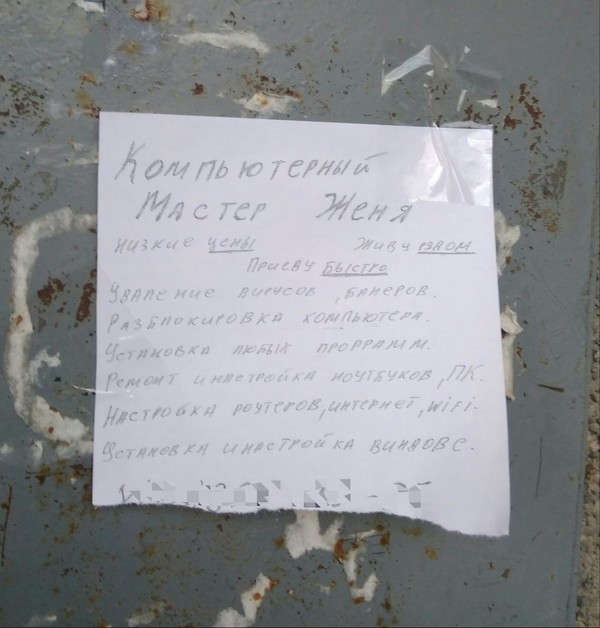 Компьютерный
Мастер Женя
Низкие цены Живу рядом
Приеду быстро
Удаление вирусов, банеров.
Разблокировка компьютера.
Установка любых программ.
Ремонт и настройка ноутбуков, ПК.
Настройка роутеров, интернет, WiFi.
Установка и настройка виндовс.